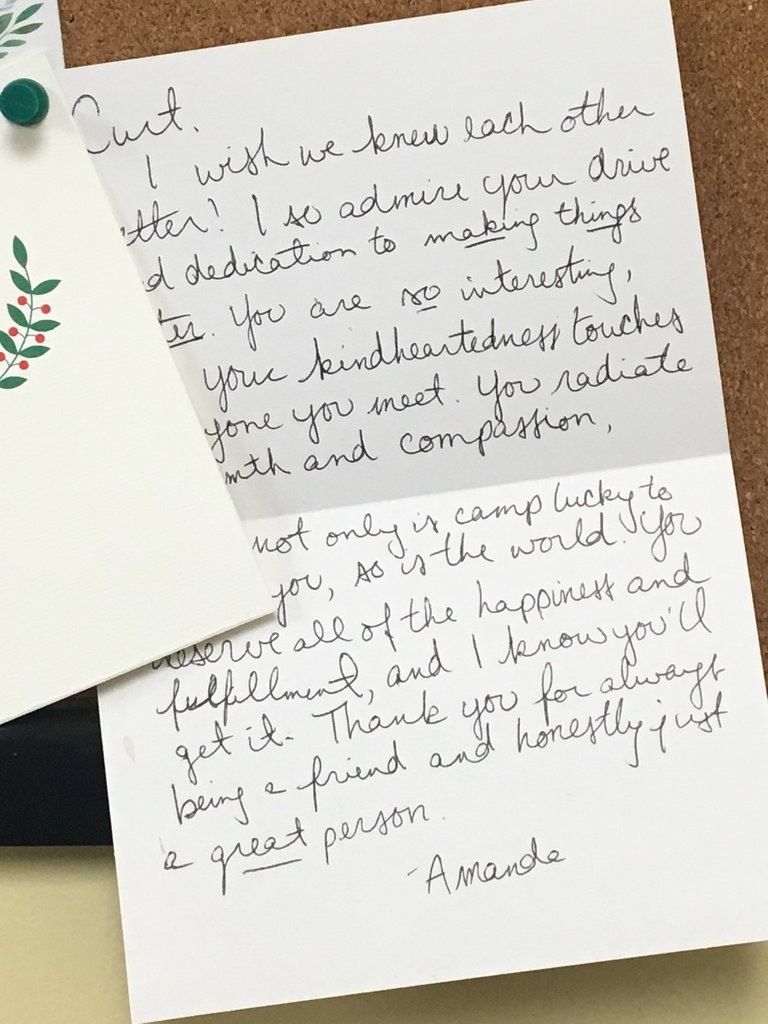 Curt.
I wish we knew each other
etter! I so admire your drive
d dedication to making things
ter. You are so interesting,
your kindheartedness touches
yone you meet. You radiate
mth and compassion,
not only is camp lucky to
you, so is the world. You
deserve all of the happiness and
fulfillment, and I know you'll
get it. Thank you for always
being a friend and honestly just
a great person.
-Amanda